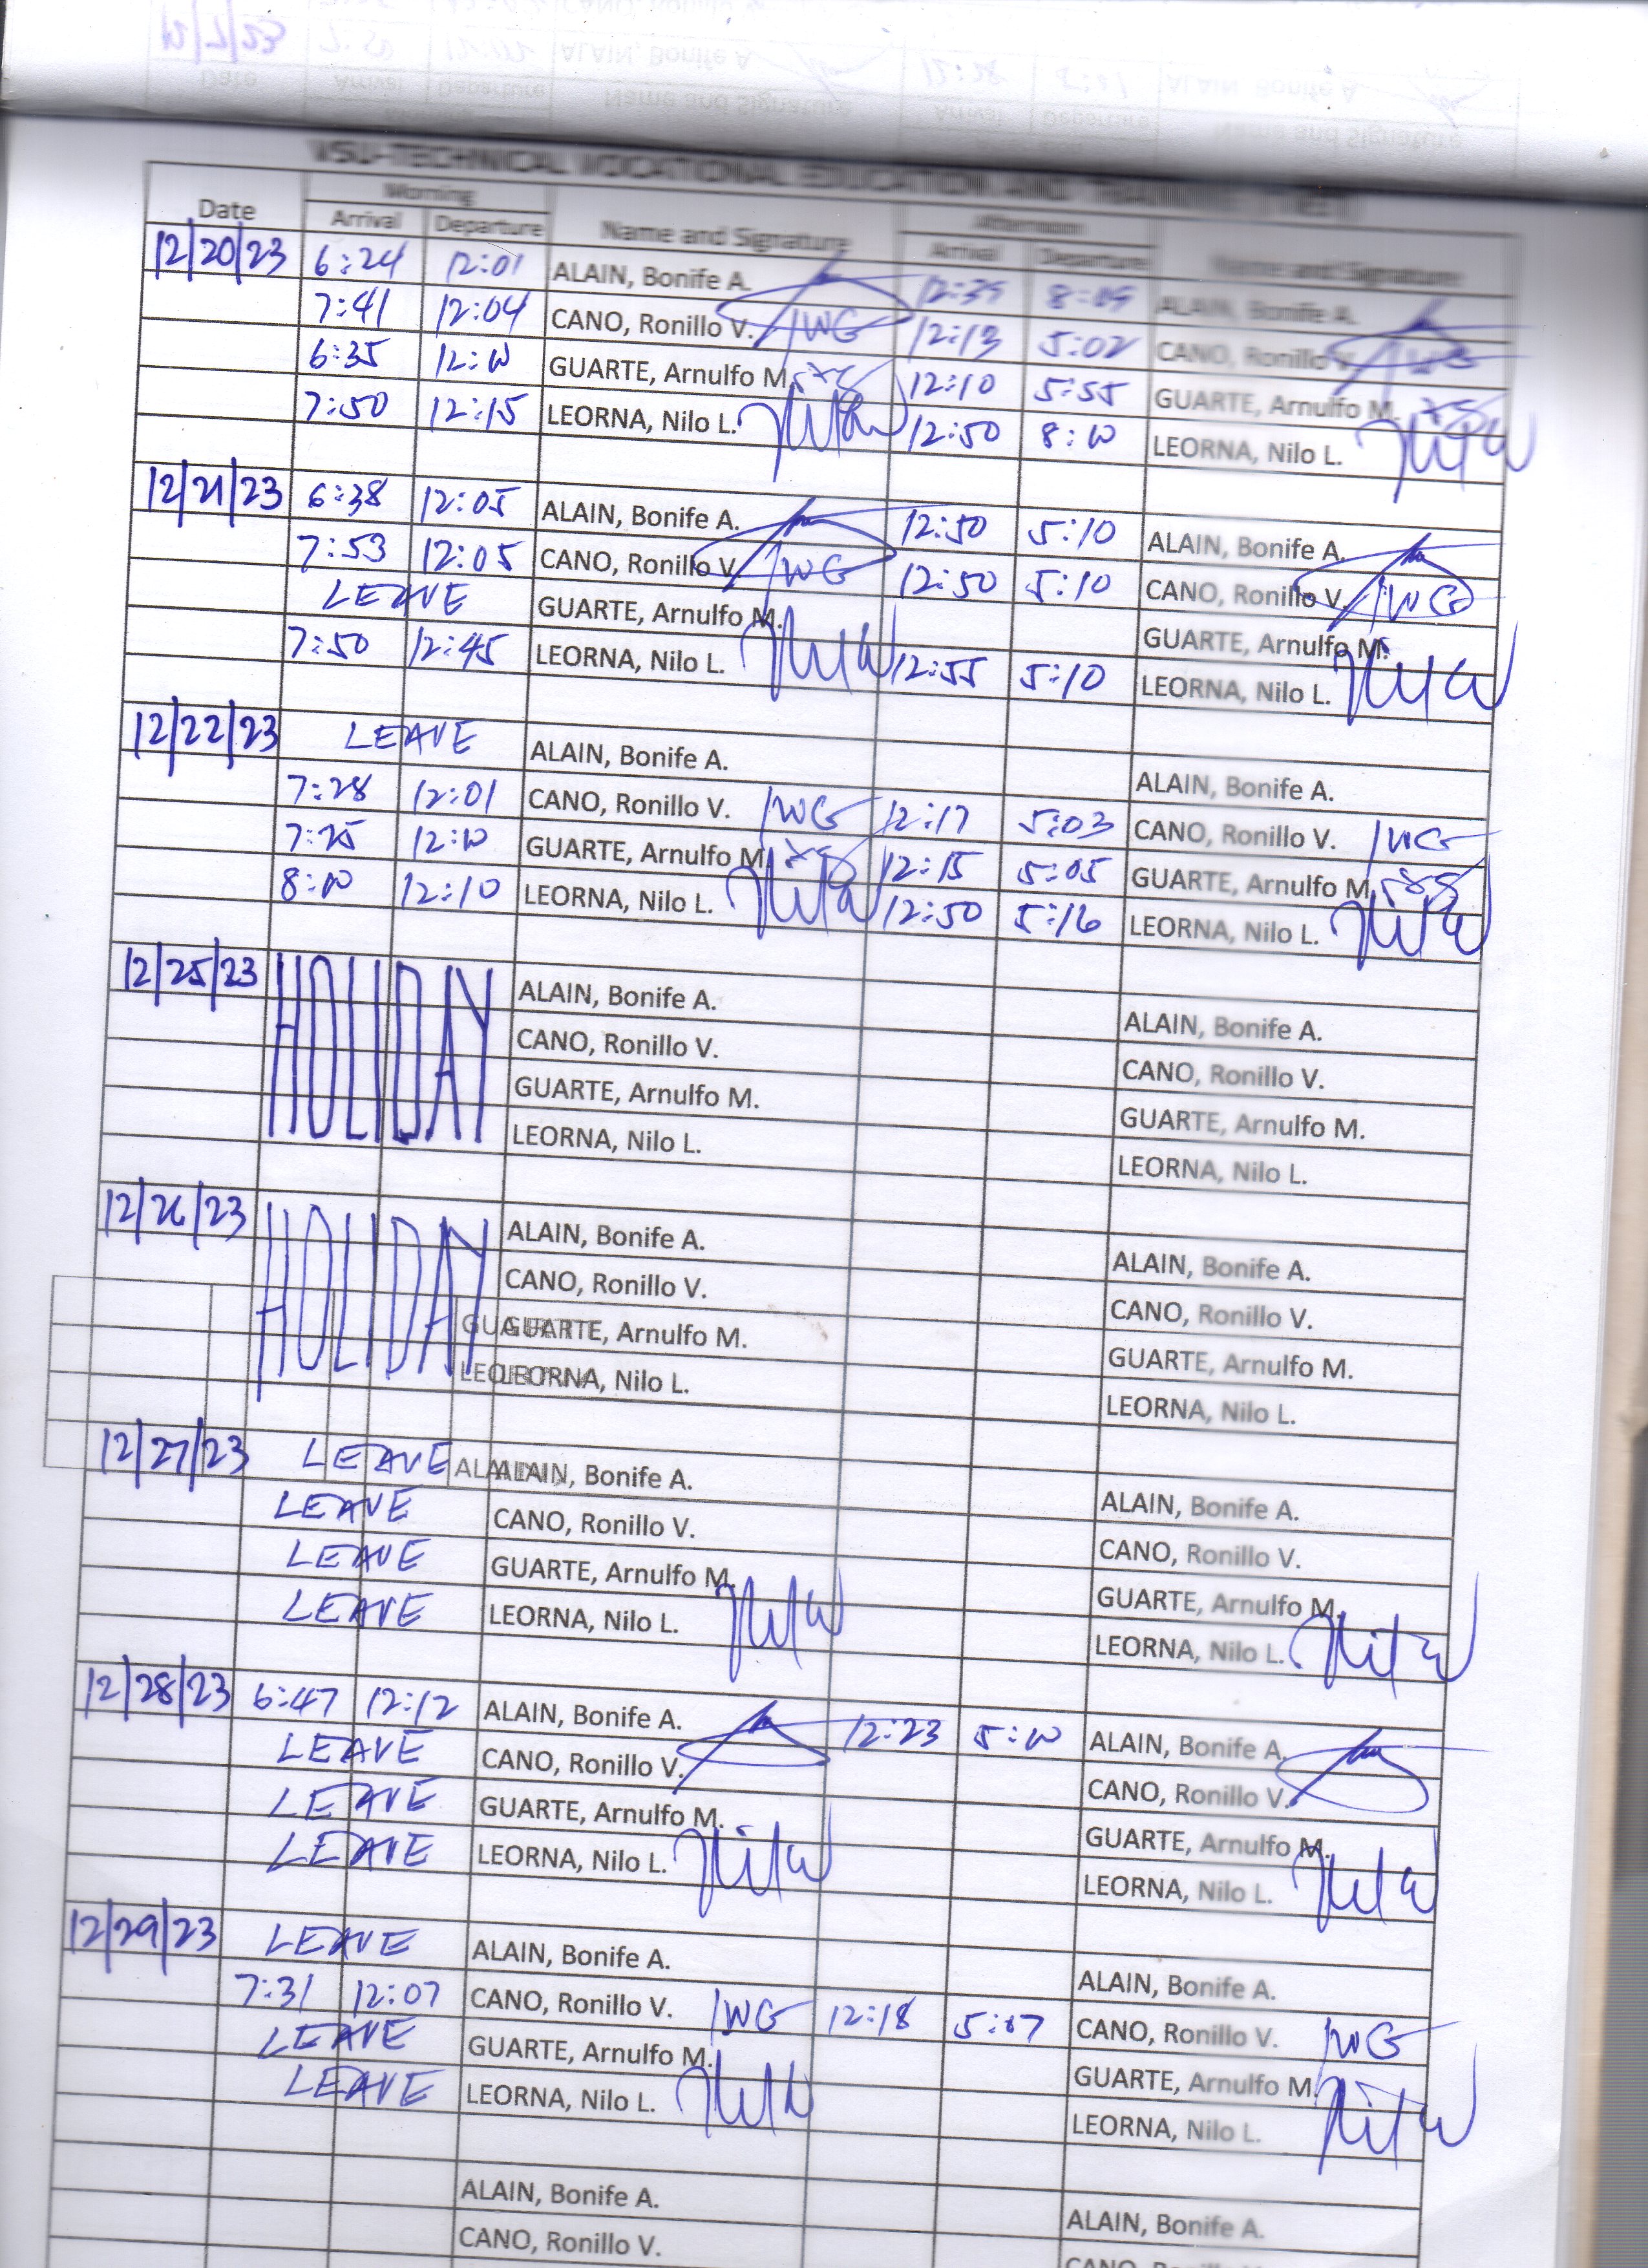 VSU-TECHNICAL VOCATIONAL EDUCATION AND
Date Morning Name and Signature Afternoon Name and Signature
Arrival Departure Arrival Departure
12/20/23 6:24 12:01 ALAIN, Bonife A. 12:39 8:09 ALAIN, Bonife A.
7:41 12:04 CANO, Ronillo V. 12:13 5:02 CANO, Ronillo V.
6:35 12:10 GUARTE, Arnulfo M. 12:10 5:55 GUARTE, Arnulfo M.
7:50 12:15 LEORNA, Nilo L. 12:50 8:10 LEORNA, Nilo L.
12/21/23 6:38 12:05 ALAIN, Bonife A. 12:50 5:10 ALAIN, Bonife A.
7:53 12:05 CANO, Ronillo V. 12:50 5:10 CANO, Ronillo V.
LEAVE GUARTE, Arnulfo M. GUARTE, Arnulfo M.
7:50 12:45 LEORNA, Nilo L. 12:55 5:10 LEORNA, Nilo L.
12/22/23 LEAVE ALAIN, Bonife A. ALAIN, Bonife A.
7:28 12:01 CANO, Ronillo V. 12:17 5:03 CANO, Ronillo V.
7:25 12:10 GUARTE, Arnulfo M. 12:15 5:05 GUARTE, Arnulfo M.
8:00 12:10 LEORNA, Nilo L. 12:50 5:16 LEORNA, Nilo L.
12/25/23 HOLIDAY ALAIN, Bonife A. ALAIN, Bonife A.
CANO, Ronillo V. CANO, Ronillo V.
GUARTE, Arnulfo M. GUARTE, Arnulfo M.
LEORNA, Nilo L. LEORNA, Nilo L.
12/26/23 HOLIDAY ALAIN, Bonife A. ALAIN, Bonife A.
CANO, Ronillo V. CANO, Ronillo V.
GUARTE, Arnulfo M. GUARTE, Arnulfo M.
LEORNA, Nilo L. LEORNA, Nilo L.
12/27/23 LEAVE ALAIN, Bonife A. ALAIN, Bonife A.
LEAVE CANO, Ronillo V. CANO, Ronillo V.
LEAVE GUARTE, Arnulfo M. GUARTE, Arnulfo M.
LEAVE LEORNA, Nilo L. LEORNA, Nilo L.
12/28/23 6:47 12:12 ALAIN, Bonife A. 12:23 5:10 ALAIN, Bonife A.
LEAVE CANO, Ronillo V. CANO, Ronillo V.
LEAVE GUARTE, Arnulfo M. GUARTE, Arnulfo M.
LEAVE LEORNA, Nilo L. LEORNA, Nilo L.
12/29/23 LEAVE ALAIN, Bonife A. ALAIN, Bonife A.
7:31 12:07 CANO, Ronillo V. 12:18 5:07 CANO, Ronillo V.
LEAVE GUARTE, Arnulfo M. GUARTE, Arnulfo M.
LEAVE LEORNA, Nilo L. LEORNA, Nilo L.
ALAIN, Bonife A. ALAIN, Bonife A.
CANO, Ronillo V.